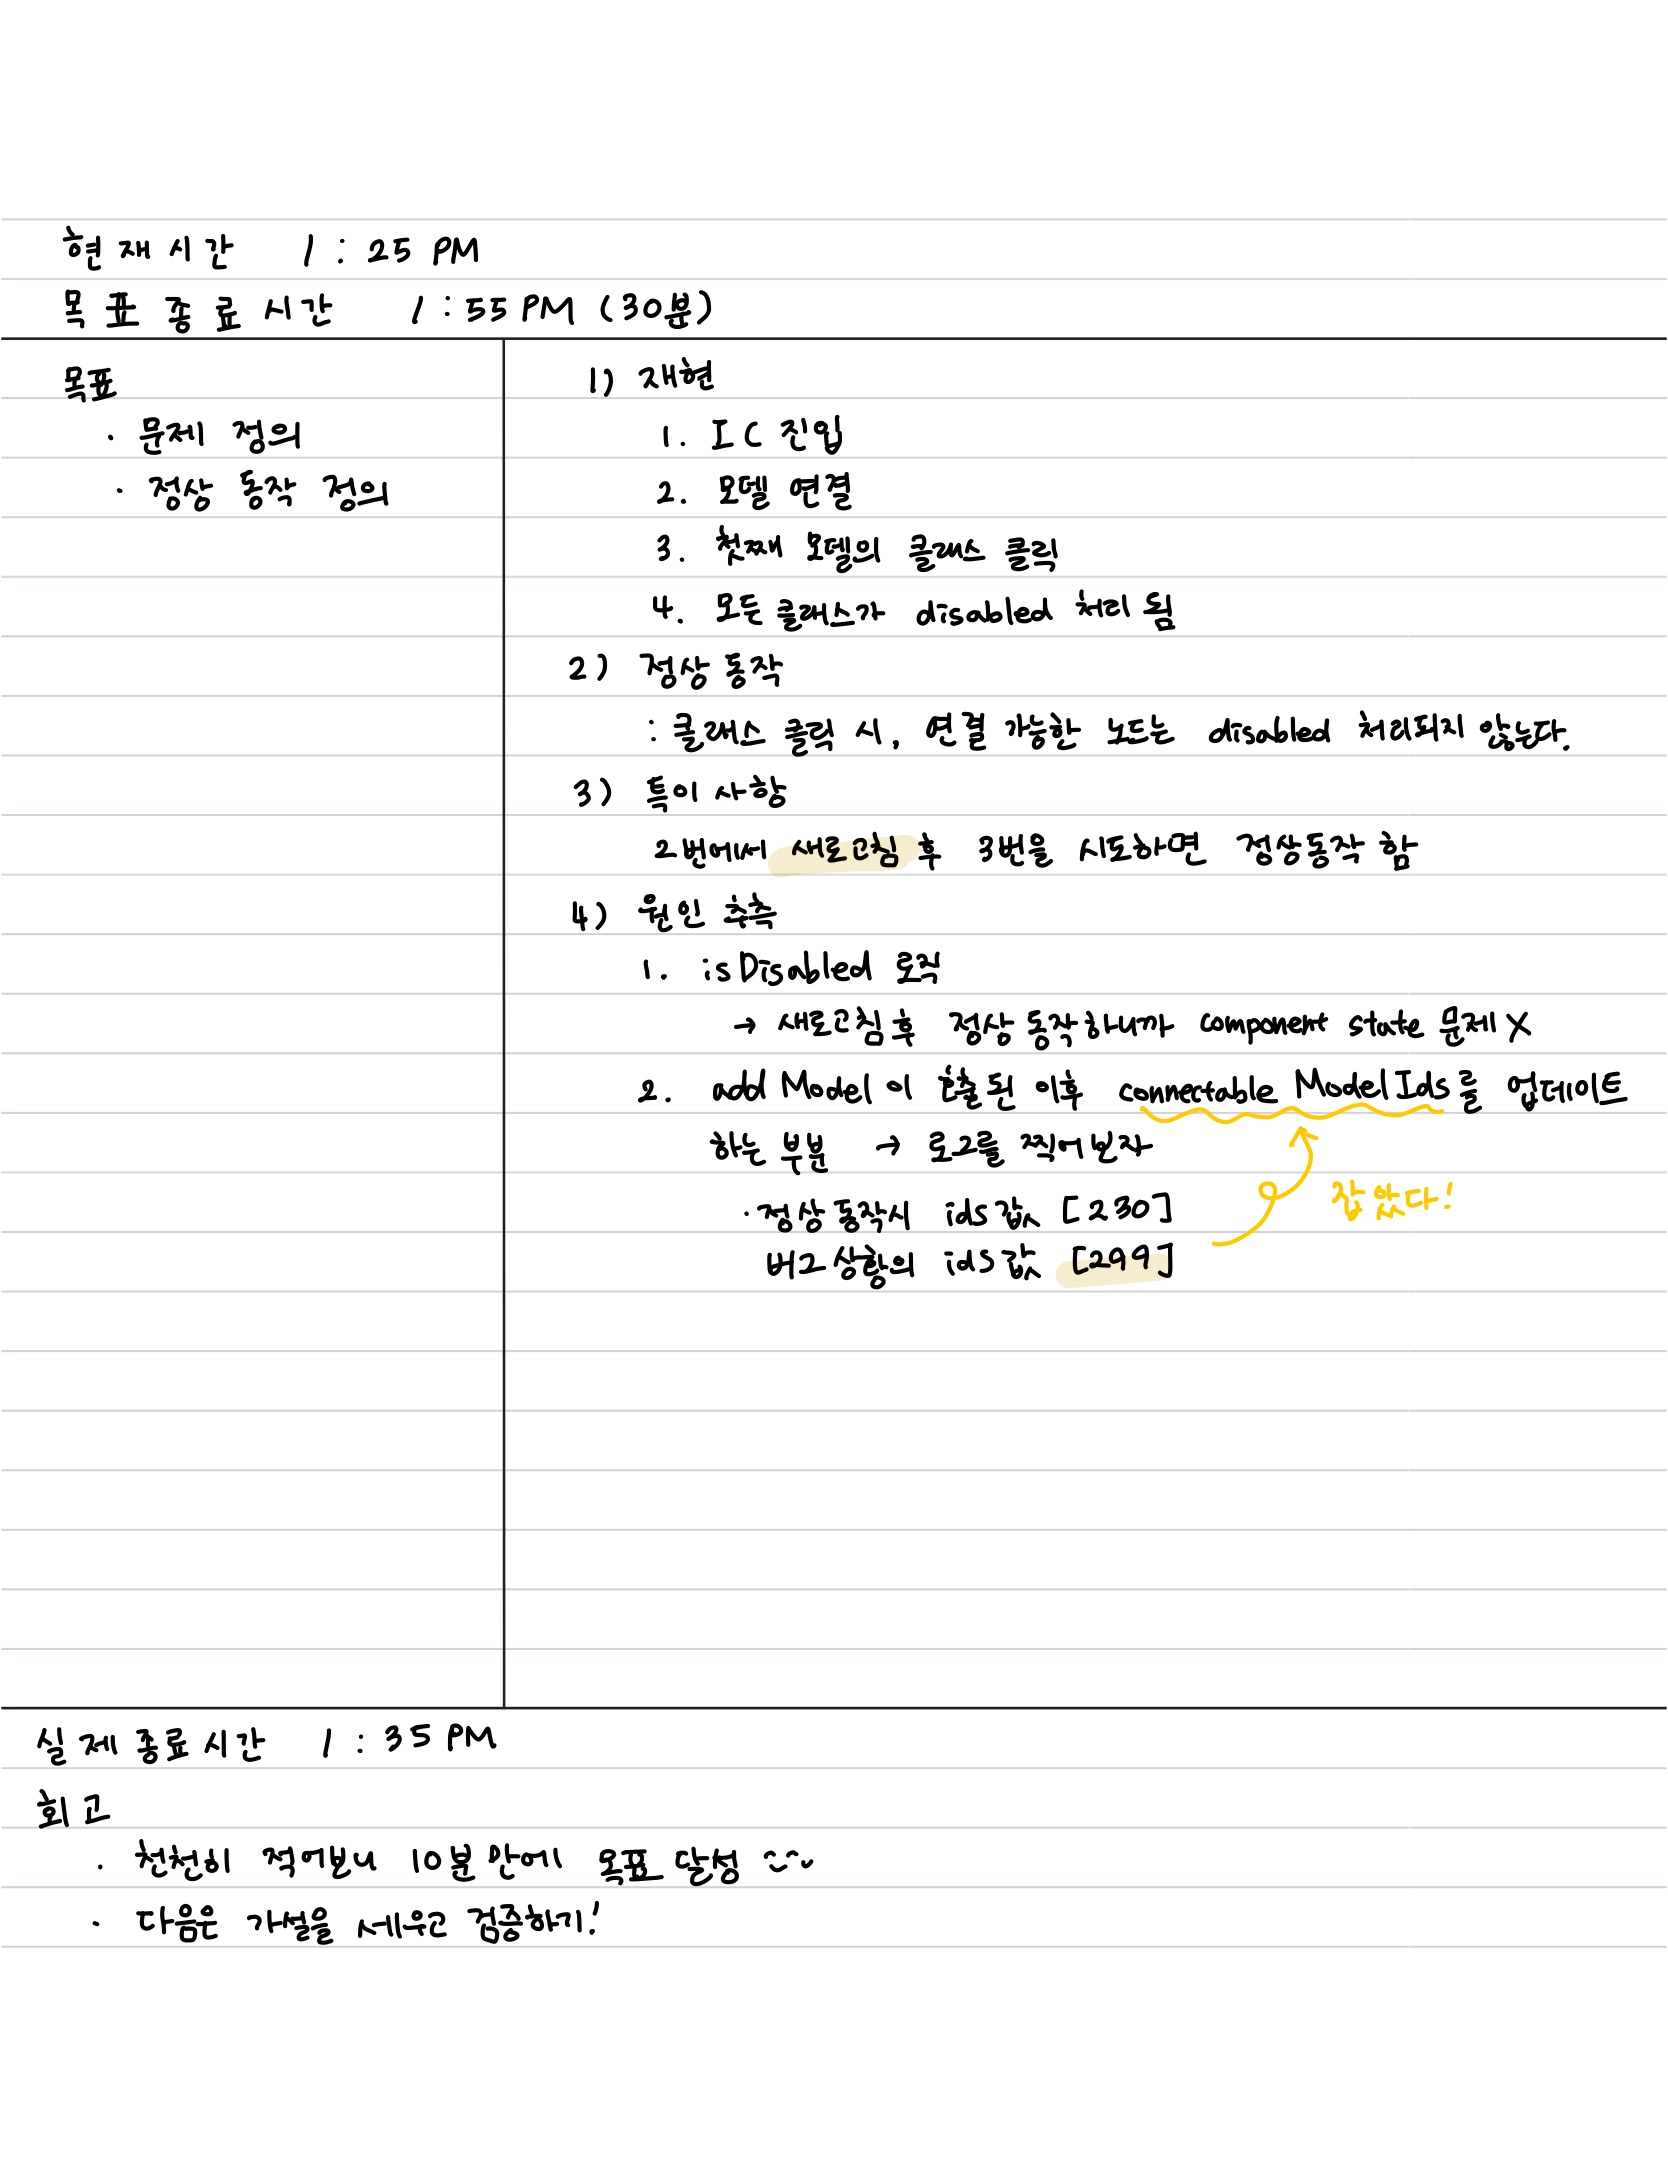 현재시간 1 : 25 PM
목표 종료시간 1 : 55 PM (30분)
목표
· 문제 정의
· 정상 동작 정의
1) 재현
1. IC 진입
2. 모델 연결
3. 첫째 모델의 클래스 클릭
4. 모든 클래스가 disabled 처리 됨
2) 정상 동작
: 클래스 클릭 시, 연결 가능한 노드는 disabled 처리되지 않는다.
3) 특이 사항
2번에서 새로고침 후 3번을 시도하면 정상동작 함
4) 원인 추측
1. isDisabled 로직
→ 새로고침 후 정상 동작하니까 component state 문제 X
2. add Model 이 호출된 이후 connectable Model Ids를 업데이트
하는 부분 → 로그를 찍어보자
· 정상 동작시 ids 값 [230]
버그 상황의 ids 값 [299]
잡았다!
실제 종료시간 1 : 35 PM
회고
· 천천히 적어보니 10분 만에 목표 달성
· 다음은 가설을 세우고 검증하기!